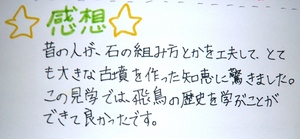 感想
昔の人が、石の組み方とかを工夫して、とて
も大きな古墳を作った知恵に驚きました。
この見学では、飛鳥の歴史を学ぶことが
できて良かったです。